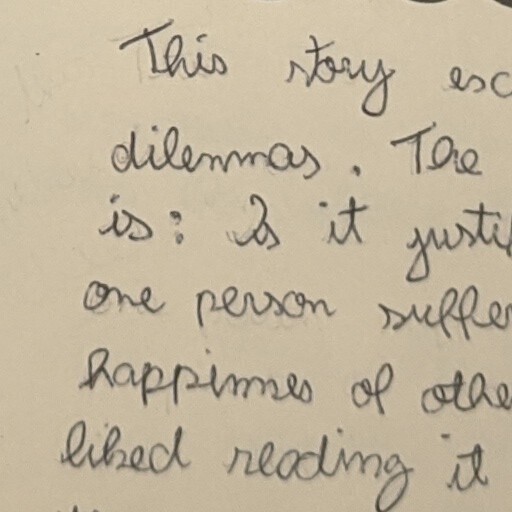 This story esc
dilemmas. The
is: Is it justi
one person suffe
happinnes of othe
liked reading it